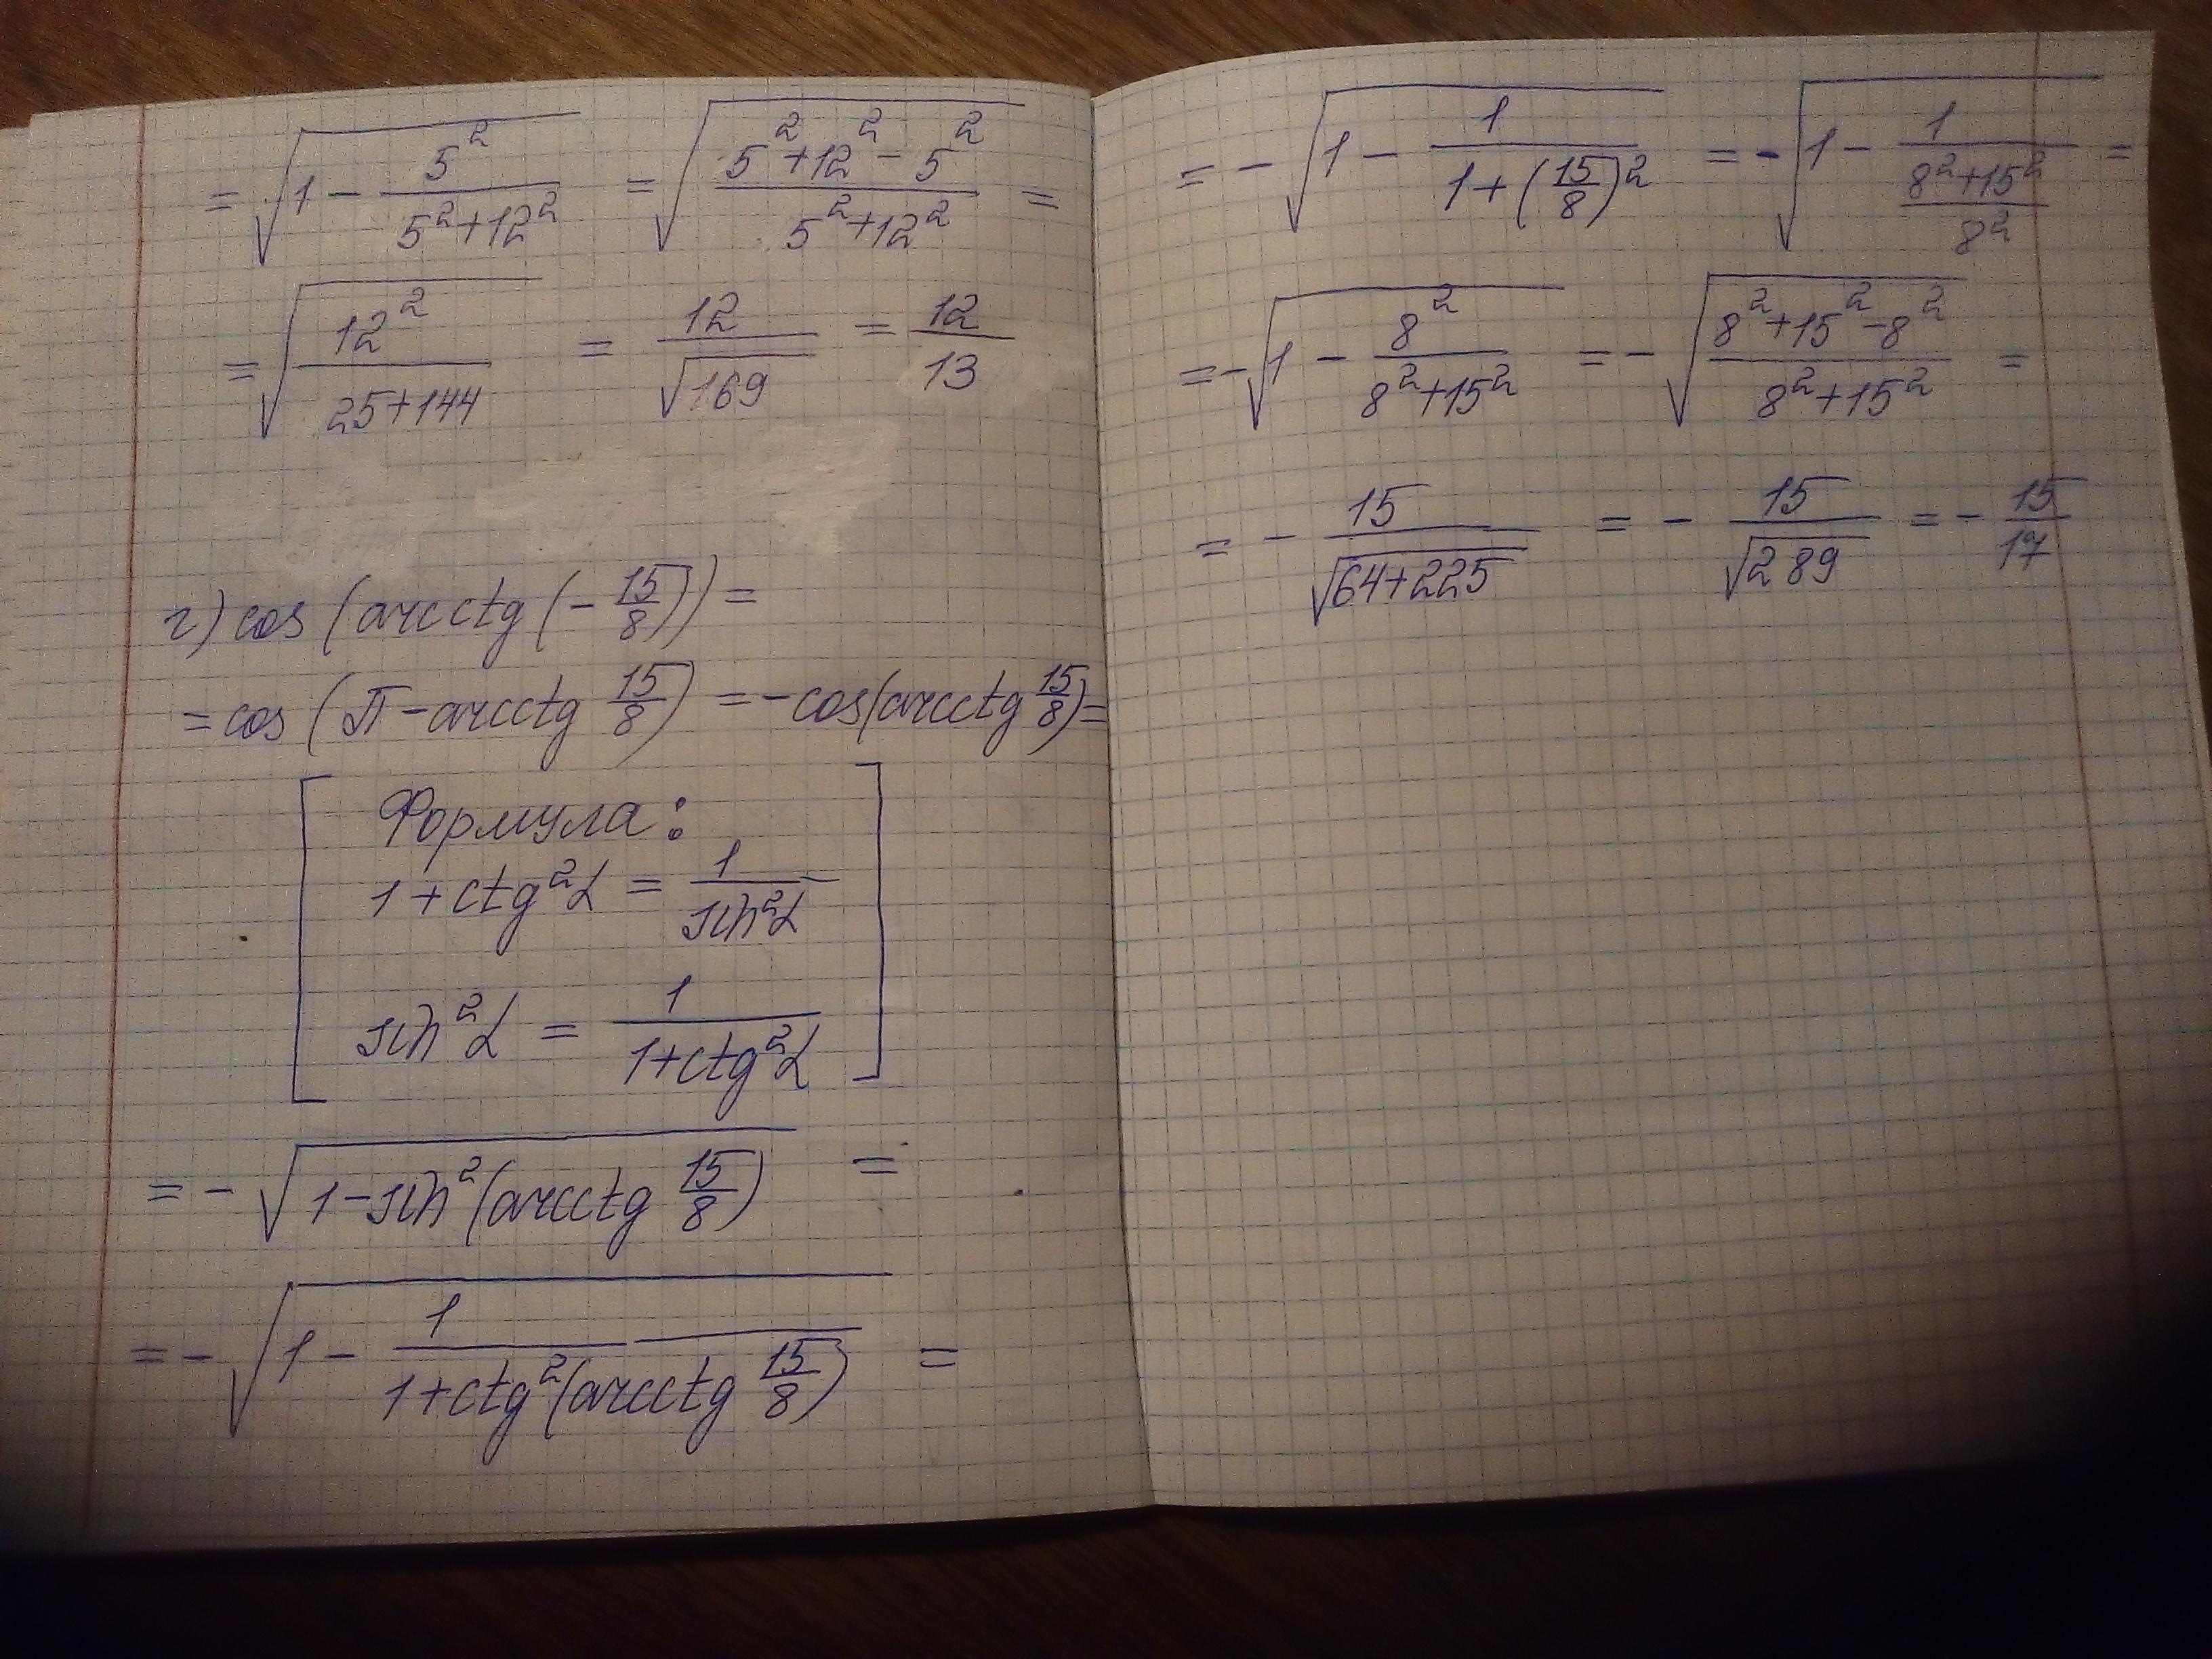 = √(1 - 5²/(5²+12²)) = √((5²+12²-5²)/(5²+12²)) =
= √(12²/(25+144)) = 12/√169 = 12/13
г) cos (arcctg (-15/8)) =
= cos (π - arcctg 15/8) = -cos(arcctg 15/8) =
Формула:
1 + ctg²α = 1/sin²α
sin²α = 1/(1+ctg²α)
= - √(1 - sin²(arcctg 15/8)) =
= - √(1 - 1/(1+ctg²(arcctg 15/8))) =
= - √(1 - 1/(1+(15/8)²)) = - √(1 - 1/((8²+15²)/8²)) =
= - √(1 - 8²/(8²+15²)) = - √((8²+15²-8²)/(8²+15²)) =
= - 15/√(64+225) = - 15/√289 = - 15/17